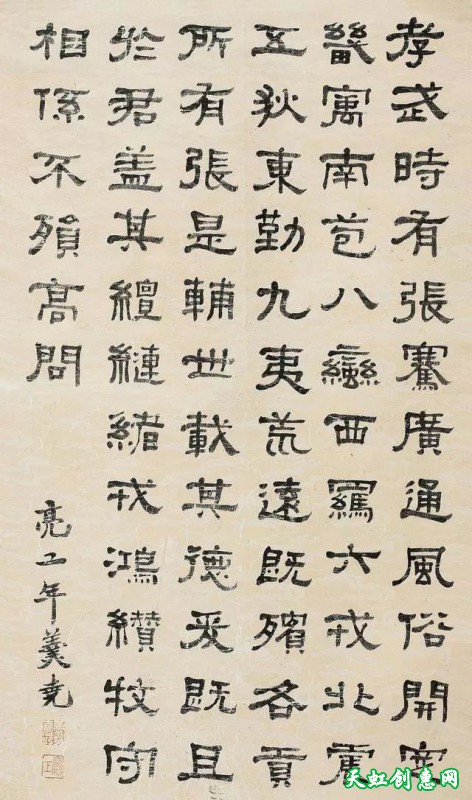 孝武時有張騫廣通風俗開定
畿寓南苞八蠻西羈六戎北震
五狄東勤九夷荒遠既殯各貢
所有張是輔世載其德爰既且
於君盖其繵縺緒戎鴻纘牧守
相係不殞高問
亮工年羹堯
天虹创惠网